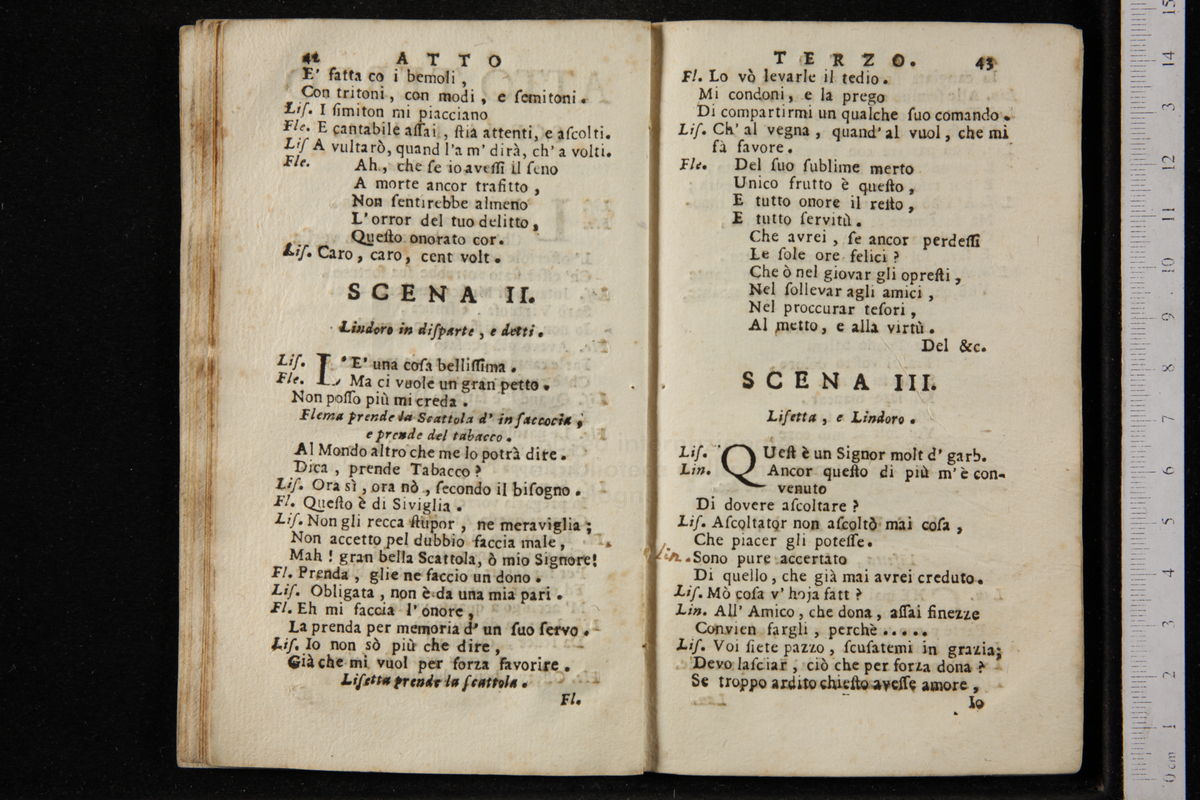 42 ATTO
E' fatta co i bemoli,
Con tritoni, con modi, e ſemitoni.
Liſ. I ſimiton mi piacciano
Fle. E cantabile aſſai, ſtia attenti, e aſcolti.
Liſ A vultarò, quand l'a m' dirà, ch' a volti.
Fle. Ah, che ſe io aveſſi il ſeno
A morte ancor trafitto,
Non ſentirebbe almeno
L'orror del tuo delitto,
Queſto onorato cor.
Liſ. Caro, caro, cent volt.
SCENA II.
Lindoro in diſparte, e detti.
Liſ. L'E' una coſa belliſſima.
Fle. Ma ci vuole un gran petto.
Non poſſo più mi creda.
Flema prende la Scattola d' in ſaccocia,
e prende del tabacco.
Al Mondo altro che me lo potrà dire.
Dica, prende Tabacco?
Liſ. Ora sì, ora nò, ſecondo il biſogno.
Fl. Queſto è di Siviglia.
Liſ. Non gli recca ſtupor, ne meraviglia;
Non accetto pel dubbio faccia male,
Mah! gran bella Scattola, ò mio Signore!
Fl. Prenda, glie ne faccio un dono.
Liſ. Obligata, non è da una mia pari.
Fl. Eh mi faccia l'onore,
La prenda per memoria d' un ſuo ſervo.
Liſ. Io non sò più che dire,
Già che mi vuol per forza favorire.
Liſetta prende la ſcattola.
Fl.
TERZO. 43
Fl. Lo vò levarle il tedio.
Mi condoni, e la prego
Di compartirmi un qualche ſuo comando.
Liſ. Ch' al vegna, quand' al vuol, che mi
fà favore.
Fle. Del ſuo ſublime merto
Unico frutto è queſto,
E tutto onore il reſto,
E tutto ſervitù.
Che avrei, ſe ancor perdeſſi
Le ſole ore felici?
Che ò nel giovar gli opreſti,
Nel ſollevar agli amici,
Nel proccurar teſori,
Al metto, e alla virtù.
Del &c.
SCENA III.
Liſetta, e Lindoro.
Liſ. QUeſt è un Signor molt d' garb.
Lin. Ancor queſto di più m'è con-
venuto
Di dovere aſcoltare?
Liſ. Aſcoltator non aſcoltò mai coſa,
Che piacer gli poteſſe.
Lin. Sono pure accertato
Di quello, che già mai avrei creduto.
Liſ. Mò coſa v' hoja fatt?
Lin. All' Amico, che dona, aſſai finezze
Convien fargli, perchè.....
Liſ. Voi ſiete pazzo, ſcuſatemi in grazia;
Devo laſciar, ciò che per forza dona?
Se troppo ardito chieſto aveſſe amore,
Io
0 cm 1 2 3 4 5 6 7 8 9 10 11 12 13 14 15